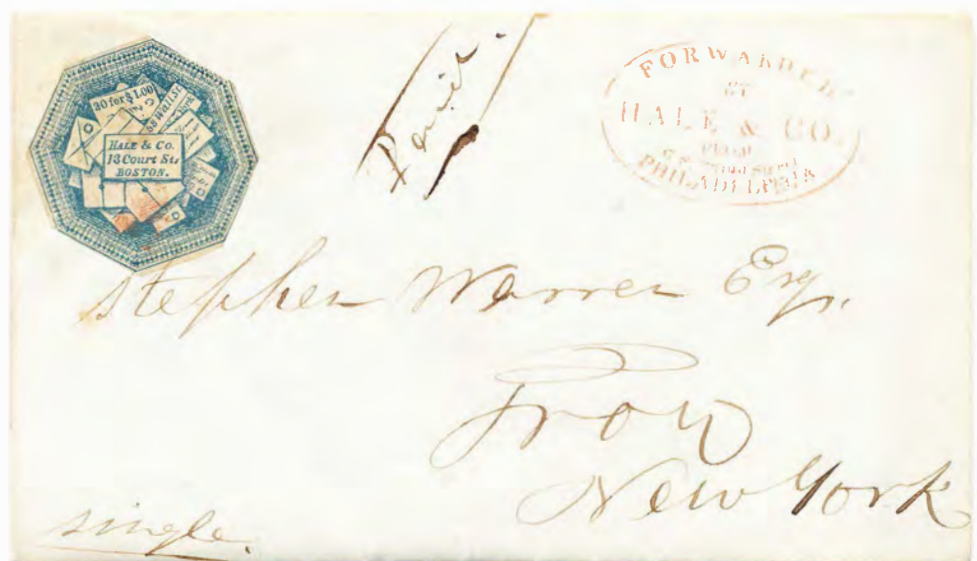 20 for $1.00
58 Wall St.
HALE & CO.
13 Court St.
BOSTON.
Paid
FORWARDED
BY
HALE & CO.
FROM
PHILADELPHIA
Stephen Warren Esq.
Troy
New York
single.